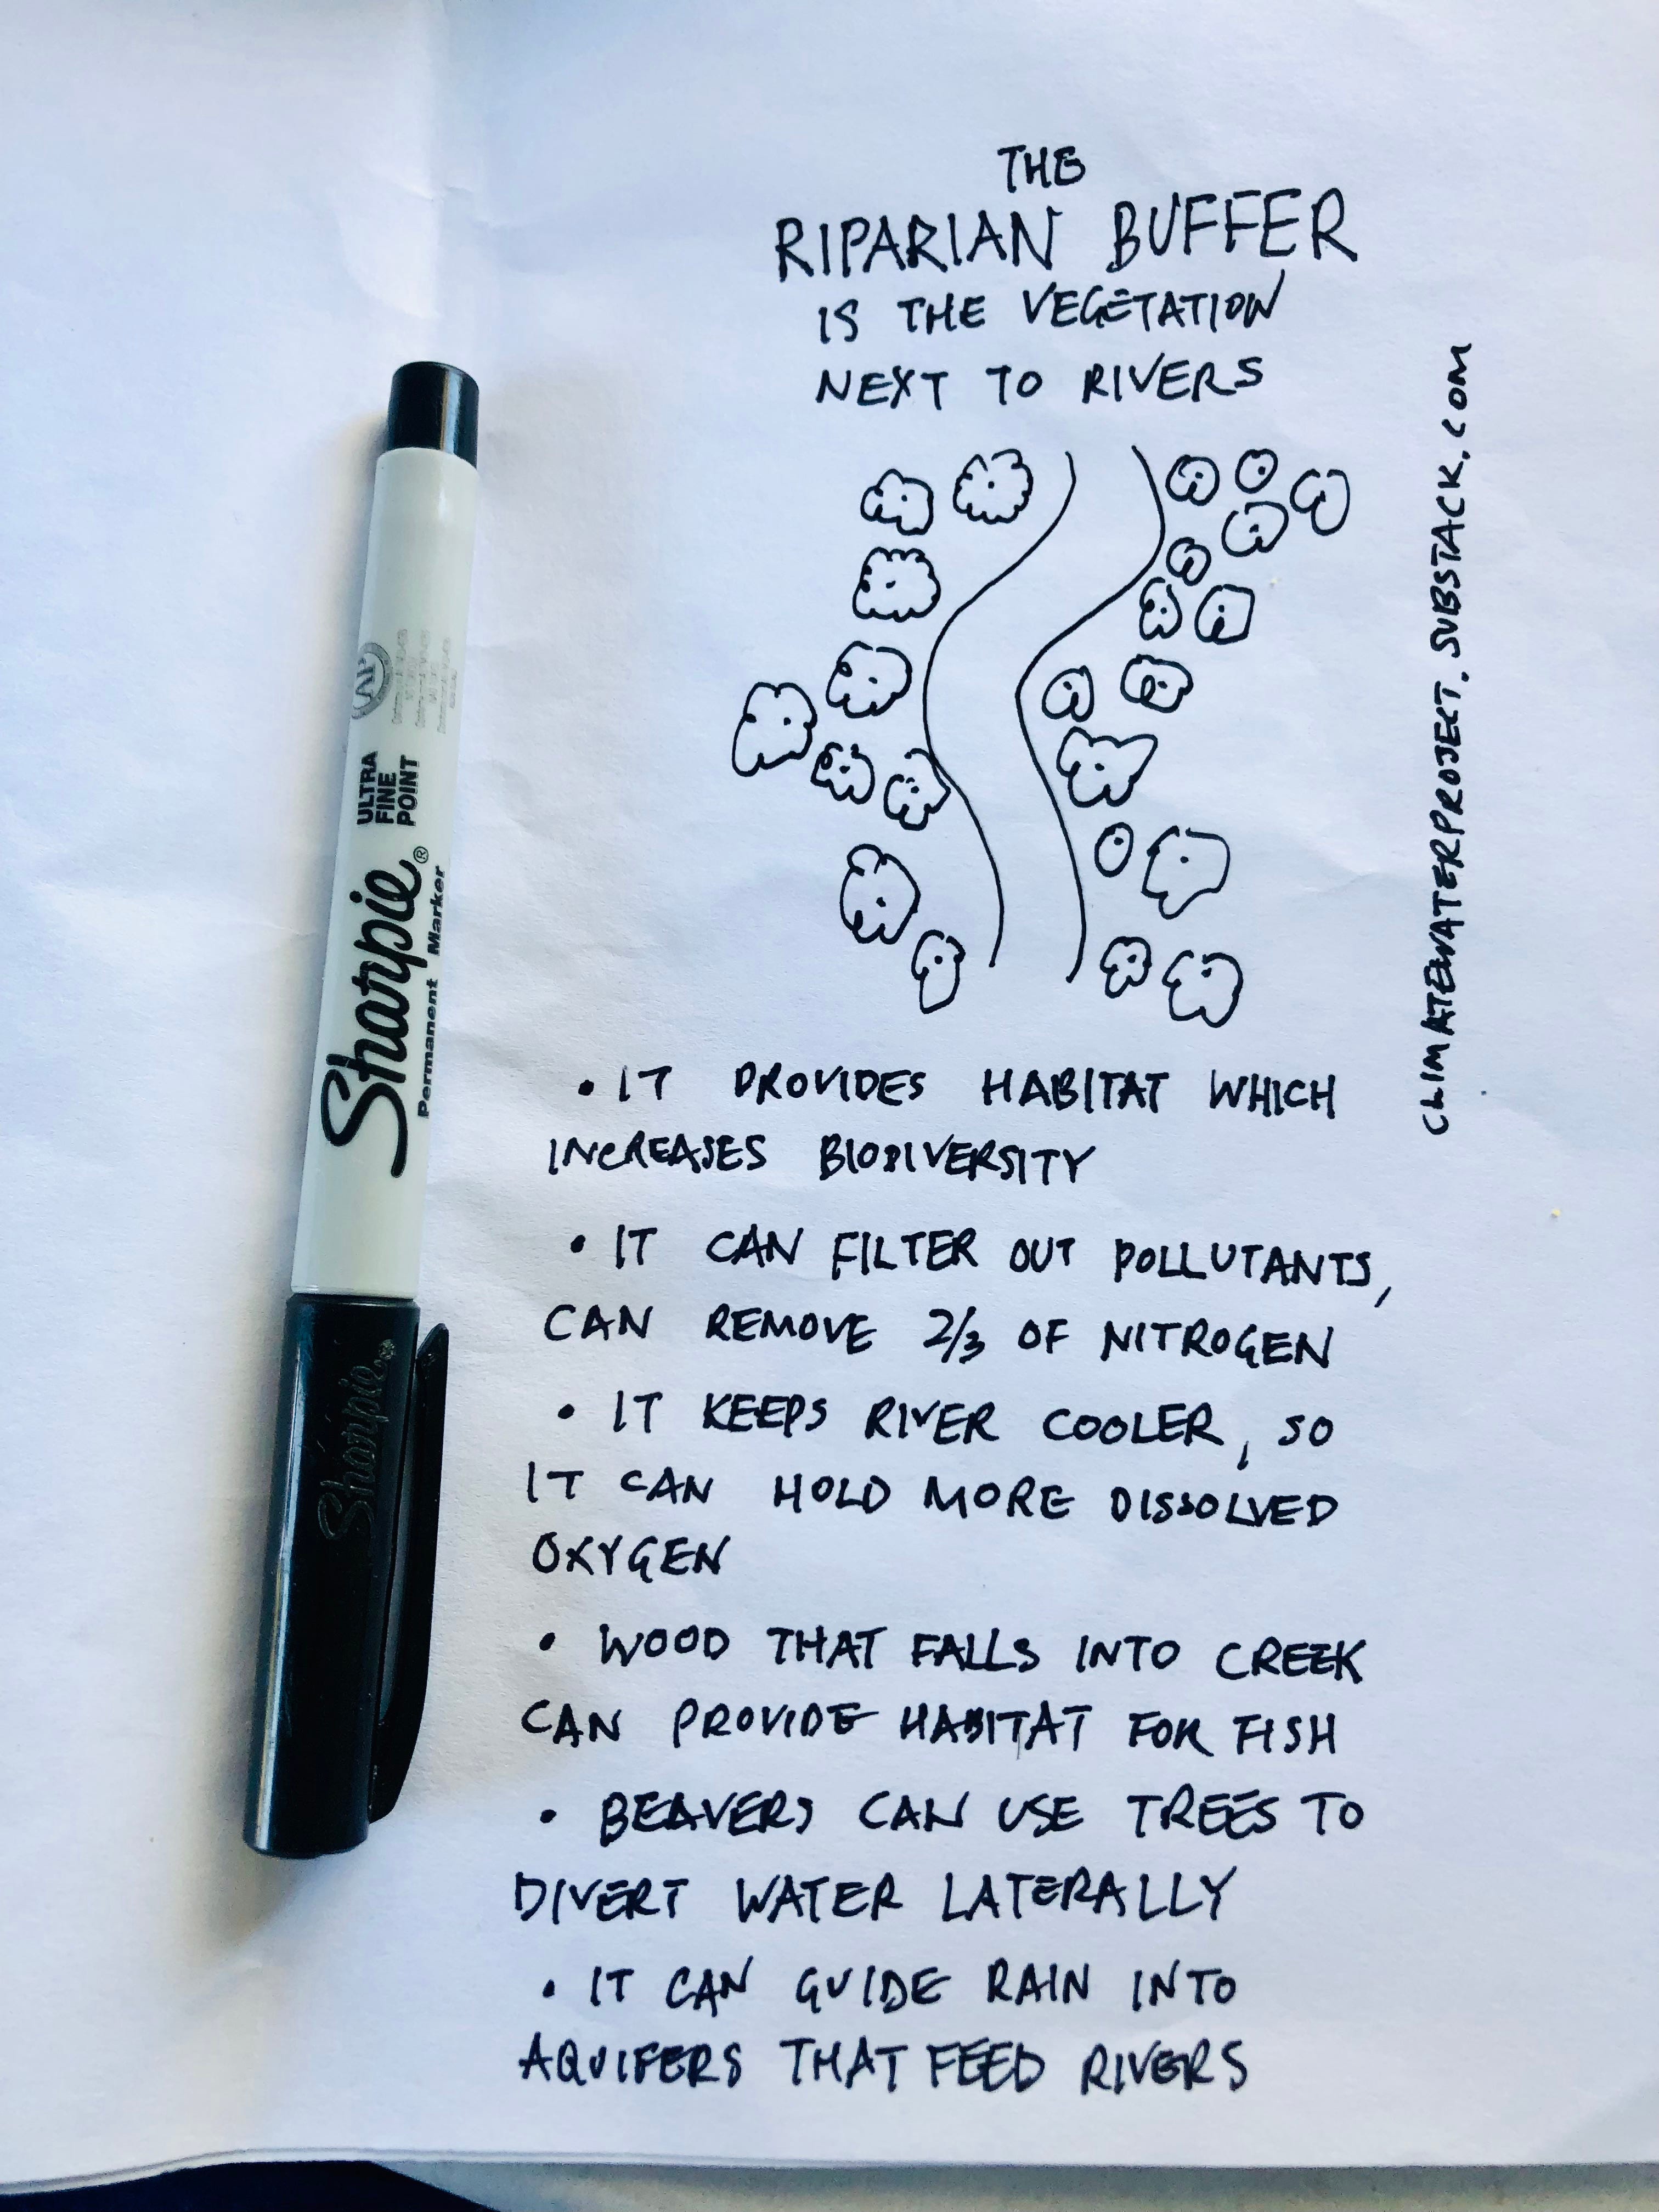 THE
RIPARIAN BUFFER
IS THE VEGETATION
NEXT TO RIVERS
CLIMATEWATERPROJECT.SUBSTACK.COM
• IT PROVIDES HABITAT WHICH
INCREASES BIODIVERSITY
• IT CAN FILTER OUT POLLUTANTS,
CAN REMOVE 2/3 OF NITROGEN
• IT KEEPS RIVER COOLER, SO
IT CAN HOLD MORE DISSOLVED
OXYGEN
• WOOD THAT FALLS INTO CREEK
CAN PROVIDE HABITAT FOR FISH
• BEAVERS CAN USE TREES TO
DIVERT WATER LATERALLY
• IT CAN GUIDE RAIN INTO
AQUIFERS THAT FEED RIVERS
Sharpie®
Permanent Marker
ULTRA
FINE
POINT
AP
Sharpie®